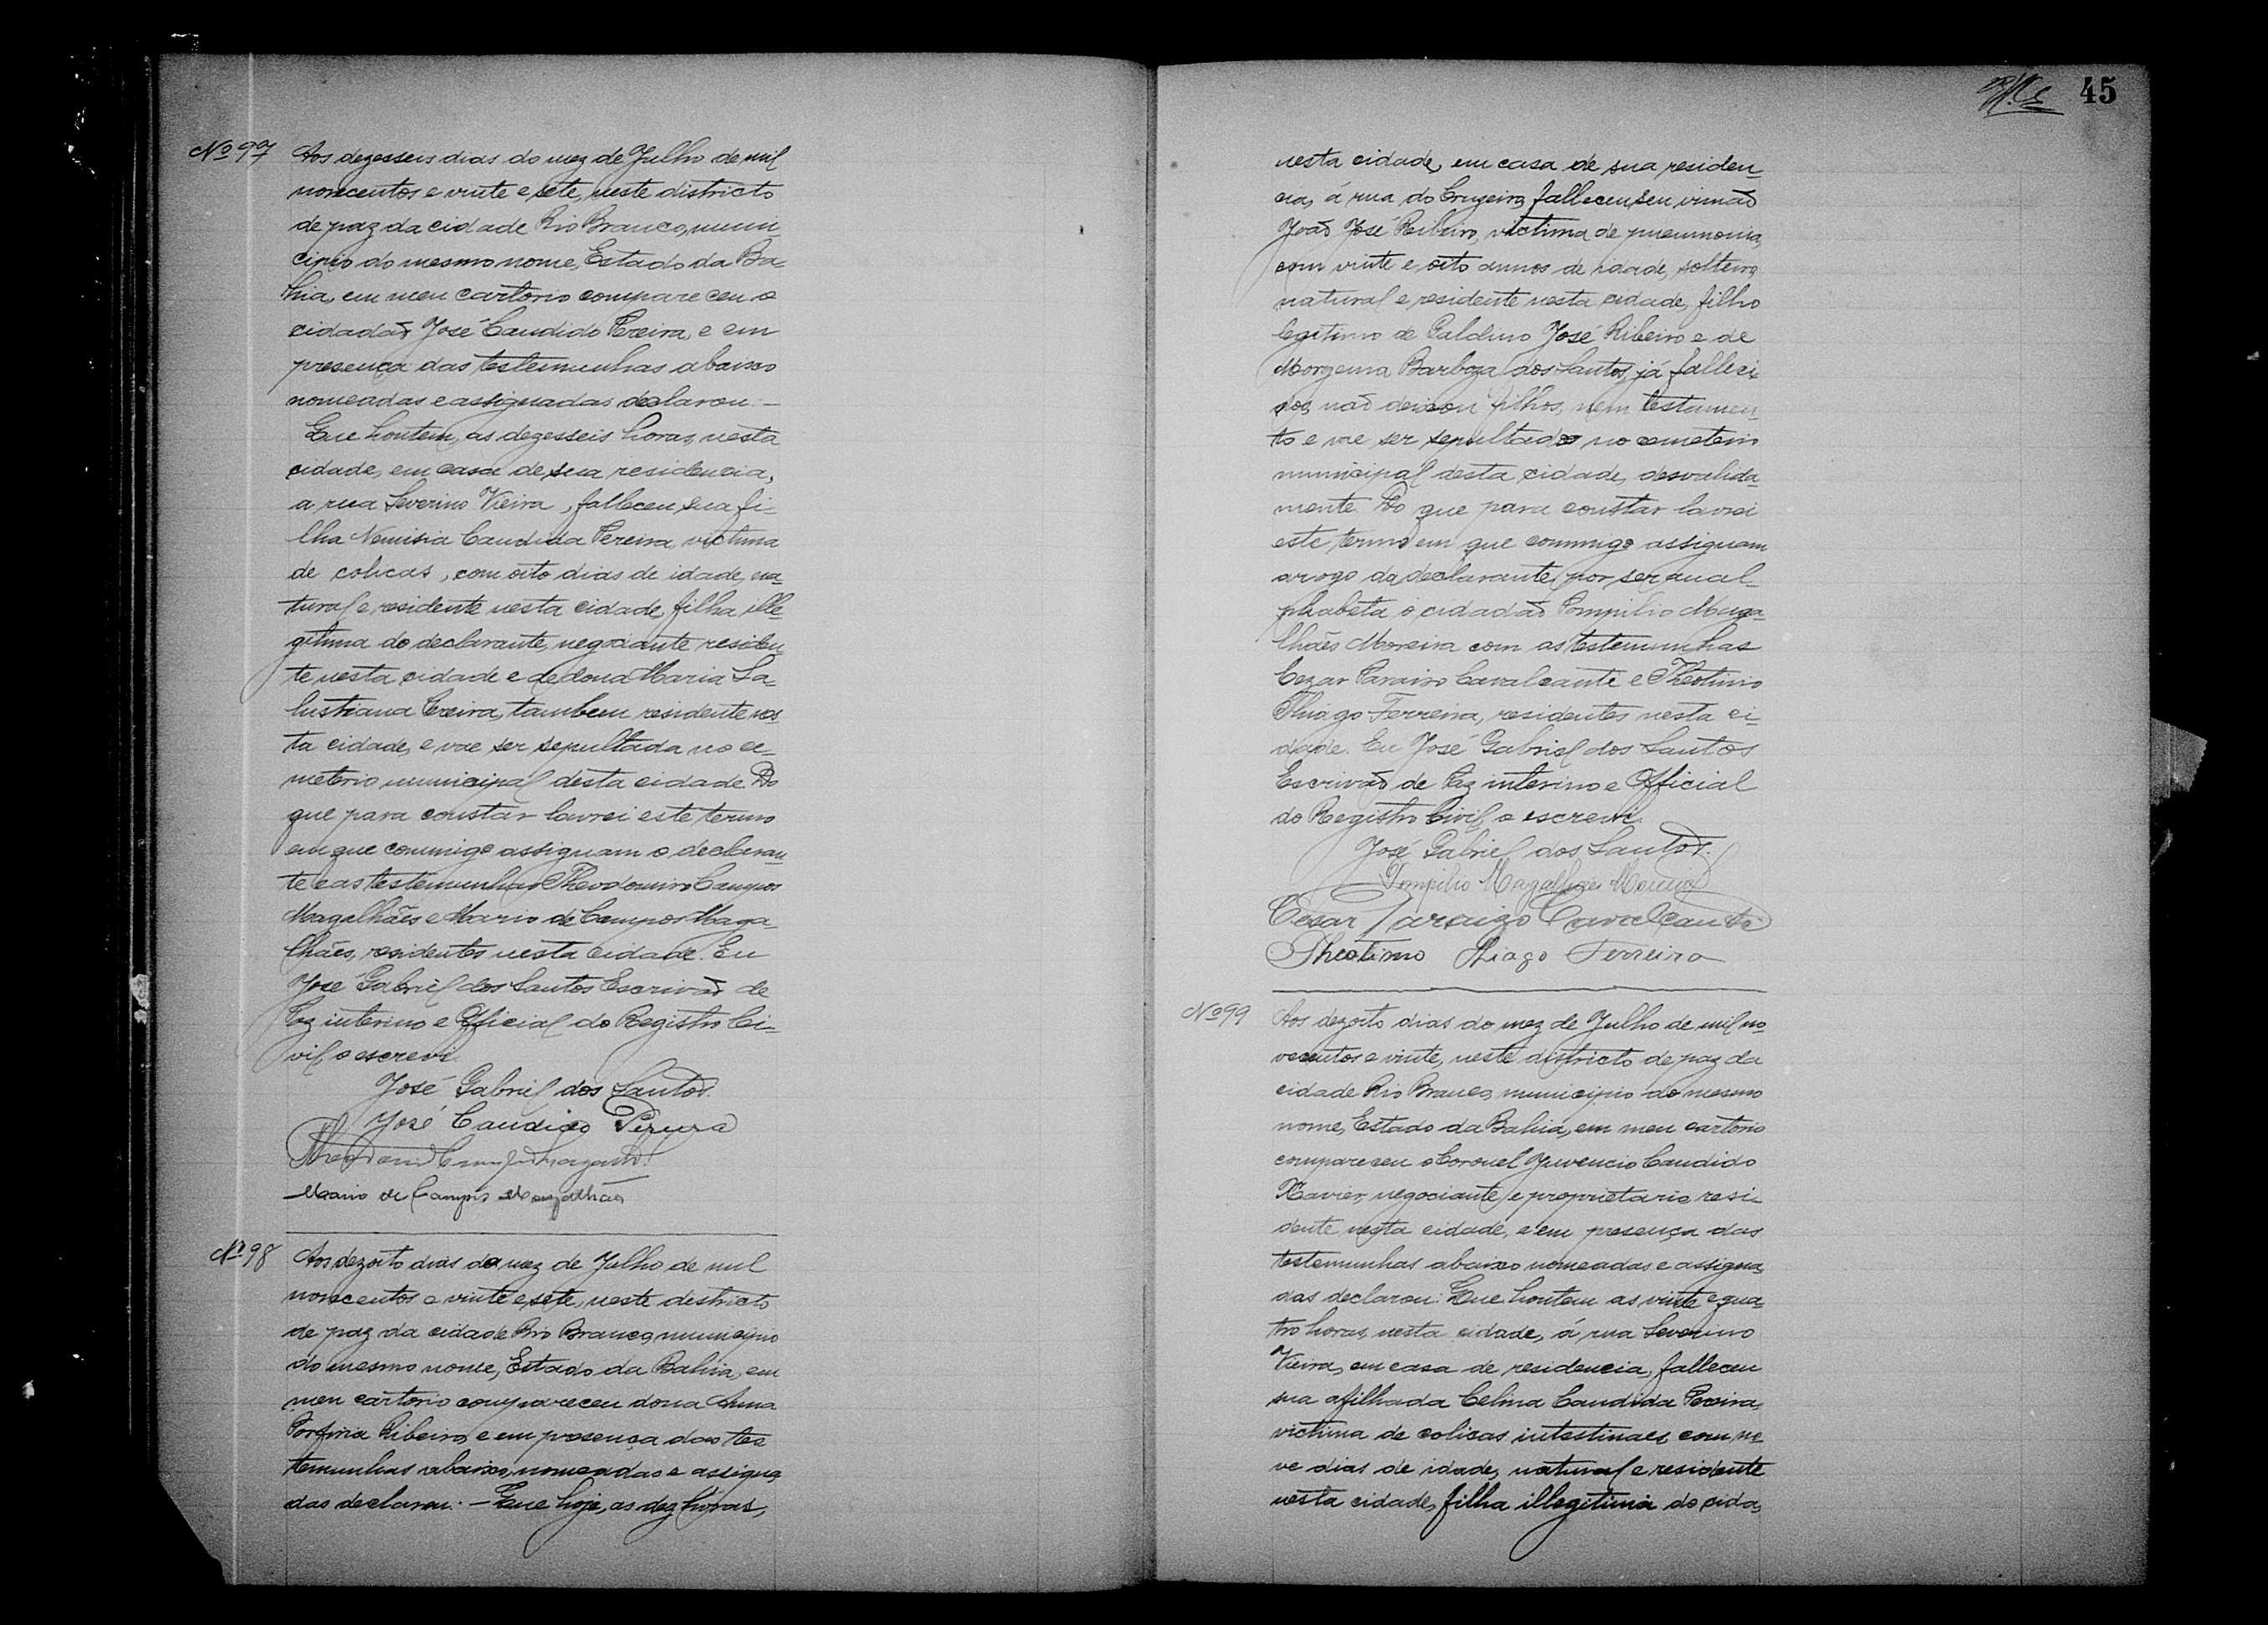 Nº 97
Aos dezesseis dias do mez de Julho de mil
novecentos e vinte e sete, neste districto
de paz da cidade Rio Branco, muni-
cipio do mesmo nome, Estado da Ba-
hia, em meu cartorio compareceu o
cidadão José Candido Pereira, e em
presença das testemunhas abaixo
nomeadas e assignadas declarou: –
Que hontem, as dezesseis horas, nesta
cidade, em casa de sua residencia,
a rua Severino Vieira, falleceu sua fi-
lha Nemisia Candida Pereira, victima
de colicas, com oito dias de idade, na-
tural e residente nesta cidade, filha ille-
gitima do declarante, negociante residen-
te nesta cidade e de dona Maria Sa-
lustiana Pereira, tambem residente nes-
ta cidade, e vae ser sepultada no ce-
meterio municipal desta cidade. Do
que para constar lavrei este termo
em que commigo assignam o declaran-
te e as testemunhas Theodomiro Campos
Magalhães e Mario de Campos Maga-
lhães, residentes nesta cidade. Eu
José Gabriel dos Santos Escrivão de
Paz interino e Official do Registro Ci-
vil o escrevi.
José Gabriel dos Santos.
José Candido Pereira
Mario de Campos Magalhães
Nº 98
Aos dezoito dias do mez de Julho de mil
novecentos e vinte e sete, neste districto
de paz da cidade Rio Branco, municipio
do mesmo nome, Estado da Bahia, em
meu cartorio compareceu dona Anna
Porfiria Ribeiro, e em presença das tes
temunhas abaixo, nomeadas e assigna-
das declarou: – Que hoje, as dez horas,
45
nesta cidade, em casa de sua residen-
cia, á rua do Cruzeiro, falleceu seu irmão
João José Ribeiro, victima de pneumonia,
com vinte e oito annos de idade, solteiro,
natural e residente nesta cidade, filho
legitimo de Galdino José Ribeiro e de
Morgema Barboza dos Santos, já falleci-
dos, não deixou filhos, nem testamen-
to e vae ser sepultado no cemeterio
municipal desta cidade, desvalida-
mente. Do que para constar lavrei
este termo em que commigo assignam
arogo da declarante, por ser anal-
phabeta o cidadão Pompilio Maga-
lhães Moreira com as testemunhas
Cezar Paraizo Cavalcante e Theotimo
Thiago Ferreira, residentes nesta ci-
dade. Eu José Gabriel dos Santos
Escrivão de Paz interino e Official
do Registro Civil o escrevi.
José Gabriel dos Santos.
Pompilio Magalhães Moreira
Cesar Paraizo Cavalcante
Theotimo Thiago Ferreira
Nº 99
Aos dezoito dias do mez de Julho de mil no-
vecentos e vinte, neste districto de paz da
cidade Rio Branco, municipio do mesmo
nome, Estado da Bahia, em meu cartorio
compareceu o Coronel Juvencio Candido
Xavier, negociante e proprietario resi-
dente nesta cidade, e em presença das
testemunhas abaixo nomeadas e assigna-
das declarou: Que hontem as vinte e qua-
tro horas, nesta cidade, á rua Severino
Vieira, em casa de residencia, falleceu
sua afilhada Celina Candida Pereira,
victima de colicas intestinaes, com no-
ve dias de idade, natural e residente
nesta cidade, filha illegitima do cida-